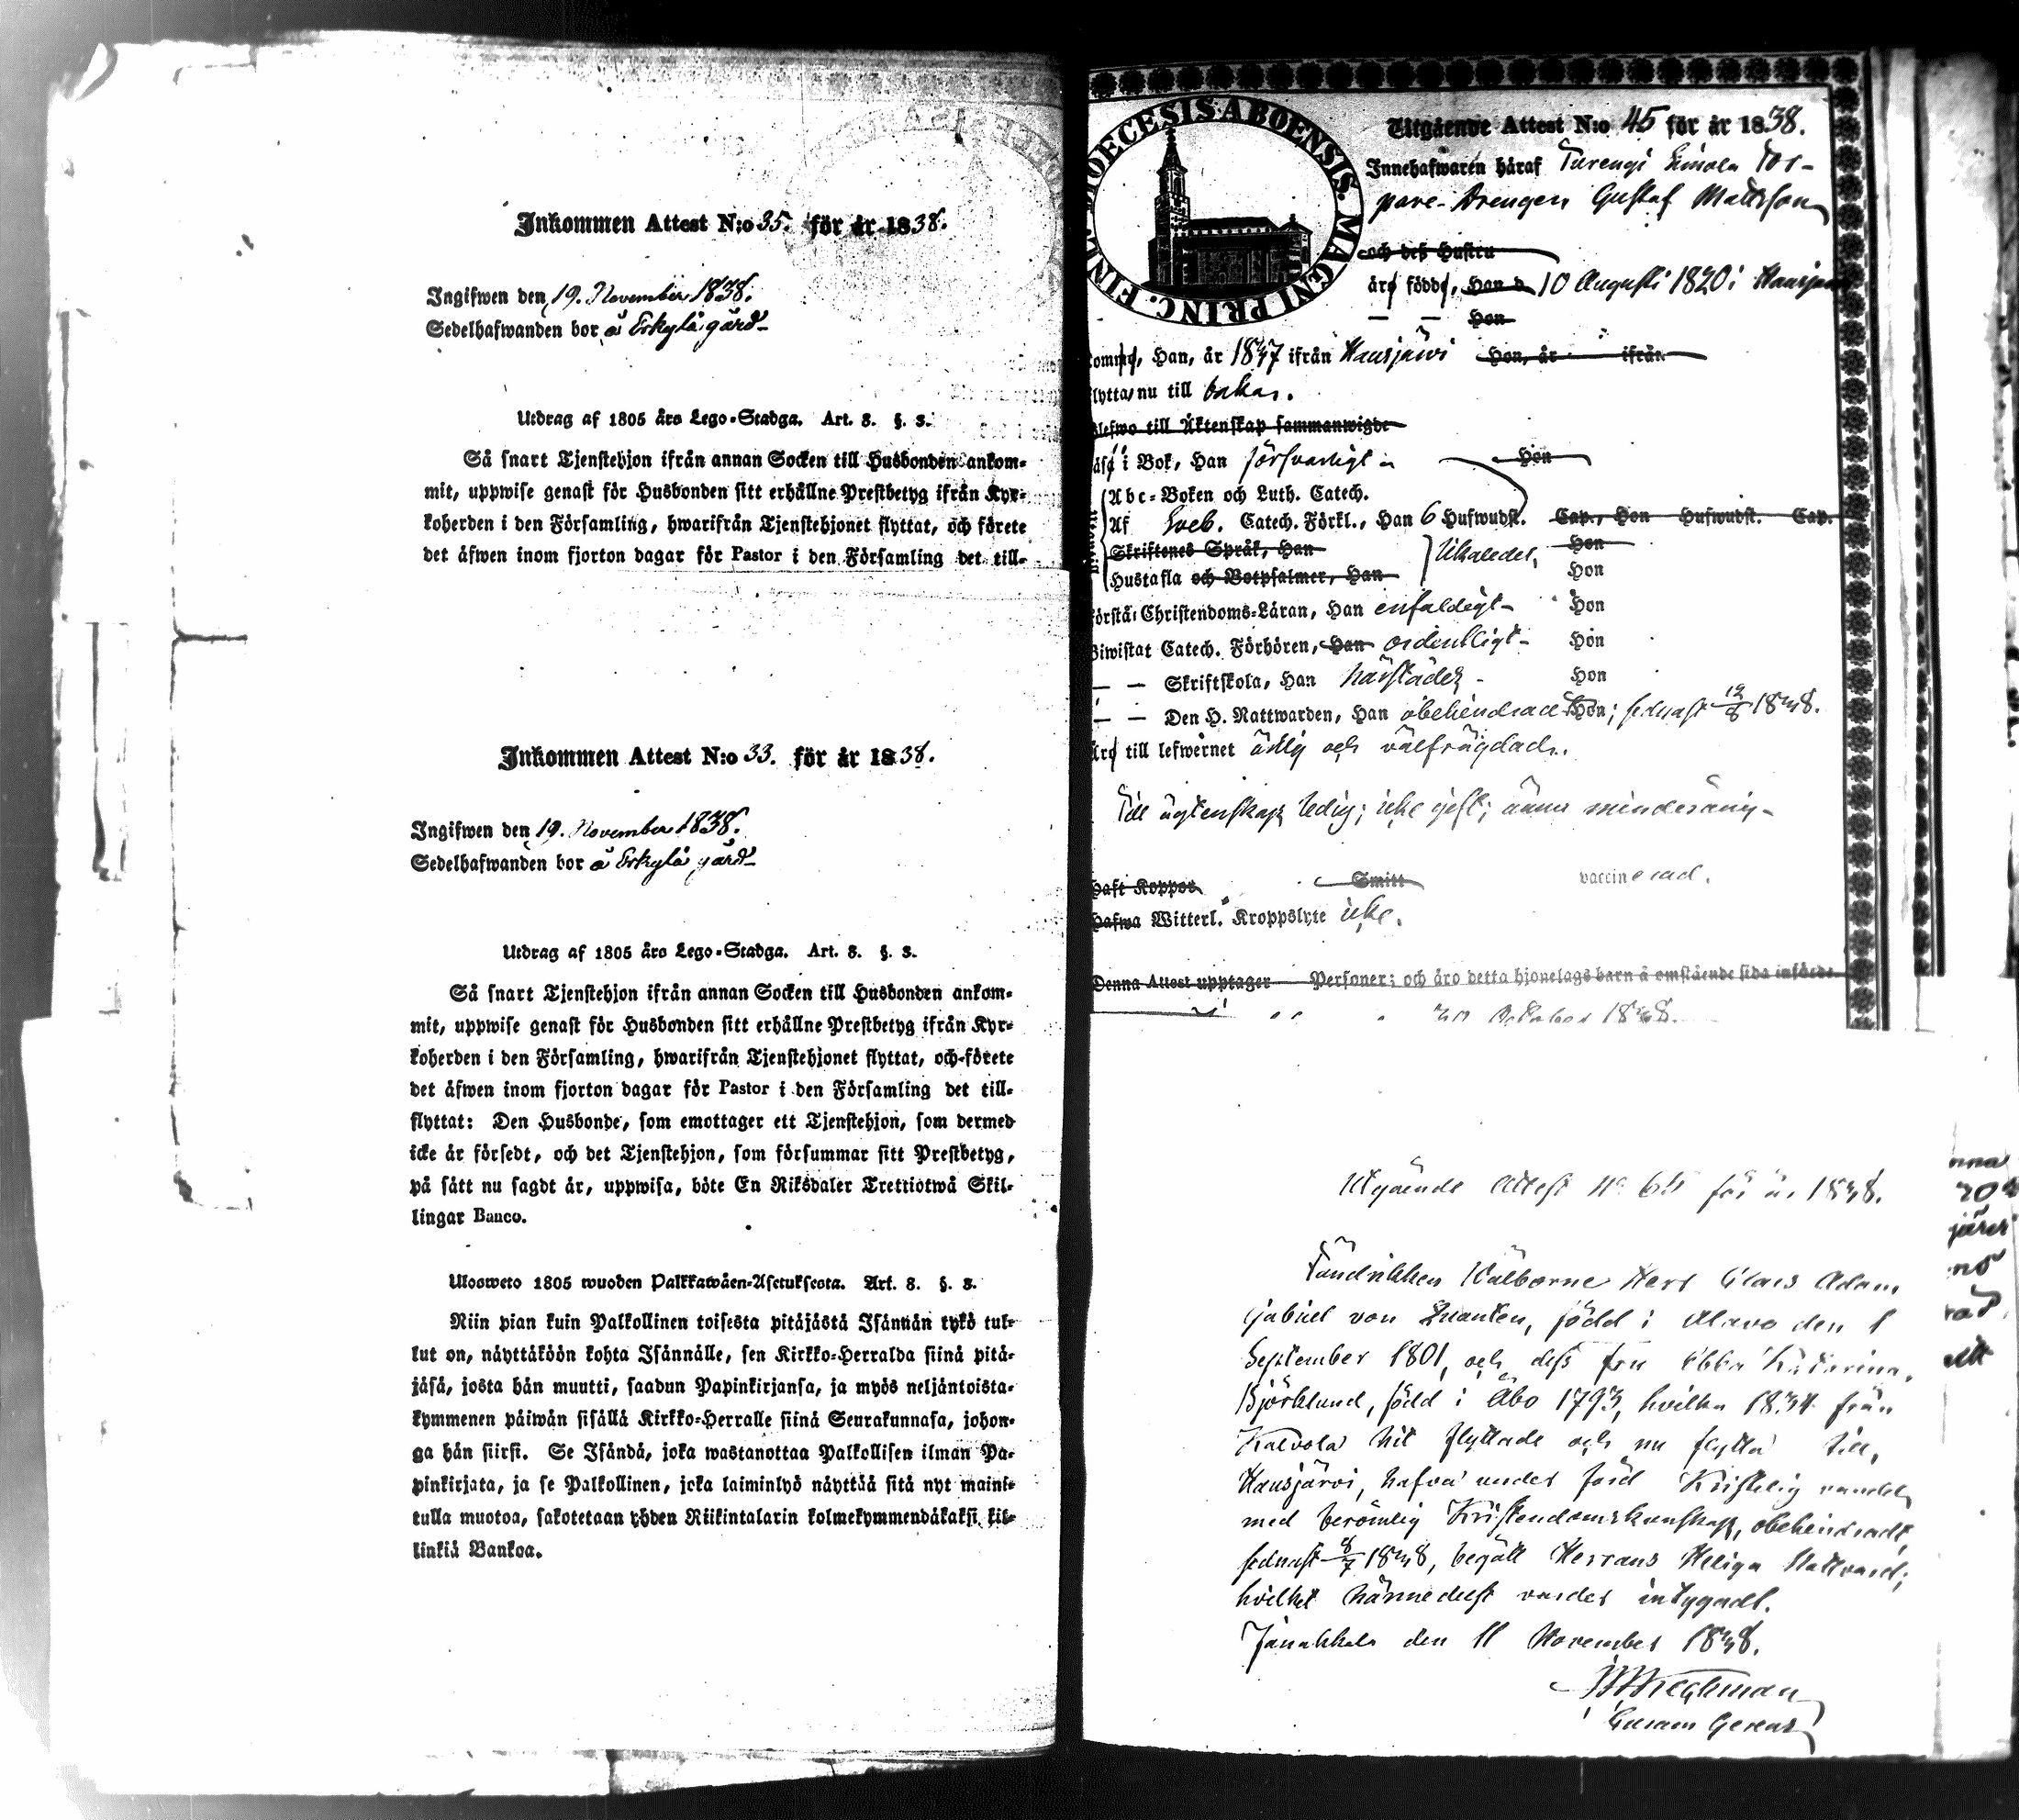 Inkommen Attest N:o 35. för år 1838.
Ingifwen den 19. November 1838.
Sedelhafwanden bor å Erkylä gård
Utdrag af 1805 års Lego-Stadga. Art. 8. §. 3.
Så snart Tjenstehjon ifrån annan Socken till Husbonden ankom-
mit, uppwise genast för Husbonden sitt erhållne Prestbetyg ifrån Kyr-
koherden i den Församling, hwarifrån Tjenstehjonet flyttat, och förete
det äfwen inom fjorton dagar för Pastor i den Församling det till-
Inkommen Attest N:o 33. för år 1838.
Ingifwen den 19. November 1838.
Sedelhafwanden bor å Erkylä gård
Utdrag af 1805 års Lego-Stadga. Art. 8. §. 3.
Så snart Tjenstehjon ifrån annan Socken till Husbonden ankom-
mit, uppwise genast för Husbonden sitt erhållne Prestbetyg ifrån Kyr-
koherden i den Församling, hwarifrån Tjenstehjonet flyttat, och förete
det äfwen inom fjorton dagar för Pastor i den Församling det till-
flyttat: Den Husbonde, som emottager ett Tjenstehjon, som dermed
icke är försedt, och det Tjenstehjon, som försummar sitt Prestbetyg,
på sätt nu sagdt är, uppwisa, böte En Riksdaler Trettiotwå Skil-
lingar Banco.
Ulosweto 1805 wuoden Palkkawäen-Asetuksesta. Art. 8. §. 3.
Niin pian kuin Palkollinen toisesta pitäjästä Isännän tykö tul-
lut on, näyttäköön kohta Isännälle, sen Kirkko-Herralda siinä pitä-
jäsä, josta hän muutti, saadun Papinkirjansa, ja myös neljäntoista-
kymmenen päiwän sisällä Kirkko-Herralle siinä Seurakunnasa, johon-
ga hän siirsi. Se Isändä, joka wastanottaa Palkollisen ilman Pa-
pinkirjata, ja se Palkollinen, joka laiminlyö näyttää sitä nyt maini-
tulla muotoa, sakotetaan yhden Riikintalarin kolmekymmendäkaksi kil-
linkiä Bankoa.
DIOECESIS ABOENSIS. MAGNI PRINC. FINL
Utgående Attest N:o 45 för år 1838.
Innehafwaren häraf Turengi Simola Tor-
pare-Drengen Gustaf Mattsson
och deß Hustru
äro födde, Han d 10 Augusti 1820 i
Hon
Han, år 1837 ifrån Hausjärvi Hon, år ifrån
nu till bakas.
till Äktenskap sammanwigde
i Bok, Han försvarligt Hon
Abc-Boken och Luth. Catech.
Af Sveb. Catech. Förkl., Han 6 Hufwudst. Cap., Hon Hufwudst. Cap.
Skriftenes Språk, Han Hon
Hustafla och Botpsalmer, Han Hon
Christendoms-Läran, Han enfaldigt Hon
Biwistat Catech. Förhören, Han ordentligt Hon
— — Skriftskola, Han härstädes Hon
— — Den H. Nattwarden, Han obehindrad Hon; sednast 12/8 1838.
till lefwernet ärlig och välfrägdad.
Till ägtenskap ledig; icke gift; ännu minderårig
Haft Koppor Smitt vaccinerad.
Hafwa Witterl. Kroppslyte icke.
Denna Attest upptager Personer; och äro detta hjonelags barn å omstående sida införde.
October 1838.
Utgående Attest No för år 1838.
Fändrikken Välborne Herr Claes Adam
Gabriel von Quanten, född i Alavo den 1
September 1801, och dess fru Ebba Katarina
Björklund, född i Åbo 1793, hvilka 1834 från
Kalvola hit flyttade och nu flytta till
Hausjärvi, hafva under förd Kristelig vandel
med berömlig Kristendomskunskap, obehindradt
sednast 8/7 1838, begått Herrans Heliga Nattvard;
hvilket härmedelst varder intygadt.
Janakkala den 11 November 1838.